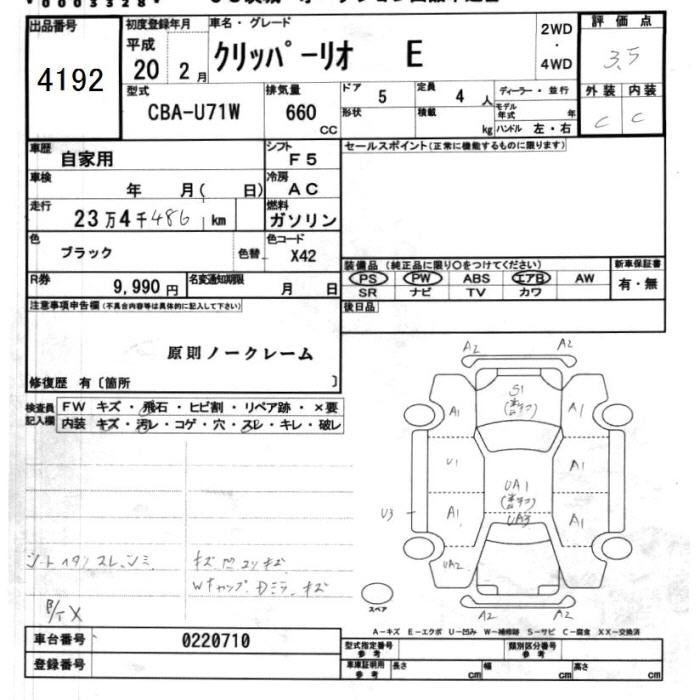 00003328
出品番号
4192
初度登録年月
平成
20 2月
車名・グレード
クリッパーリオ E
2WD
・
4WD
評価点
3.5
外装 内装
C C
型式
CBA-U71W
排気量
660
CC
ドア
5
定員
4 人
ディーラー・並行
モデル年式 年
形状
積載
kg
ハンドル 左・右
車歴
自家用
シフト
F5
セールスポイント(正常に機能するものに限ります)
車検
年 月( 日)
冷房
AC
走行
23万4千486 km
燃料
ガソリン
色
ブラック
色替
色コード
X42
装備品(純正品に限り○をつけてください)
新車保証書
PS PW ABS エアB AW
有・無
SR ナビ TV カワ
R券
9,990円
名変通知期限
月 日
後日品
注意事項申告欄(不具合内容等は具体的に記入して下さい)
原則ノークレーム
修復歴 有〔箇所 〕
検査員記入欄
FW キズ・飛石・ヒビ割・リペア跡・×要
内装 キズ・汚レ・コゲ・穴・スレ・キレ・破レ
A2 A2
S1
A1 A1
U1
UA1
A1
U3
A1 UA3 A1
UA2
A2 A2
スペア
Wキャップ Dミラーキズ
A-キズ E-エクボ U-凹み W-補修跡 S-サビ C-腐食 XX-交換済
車台番号
0220710
登録番号
型式指定番号 参考
類別区分番号 参考
車庫証明用 参考
長さ cm 幅 cm 高さ cm